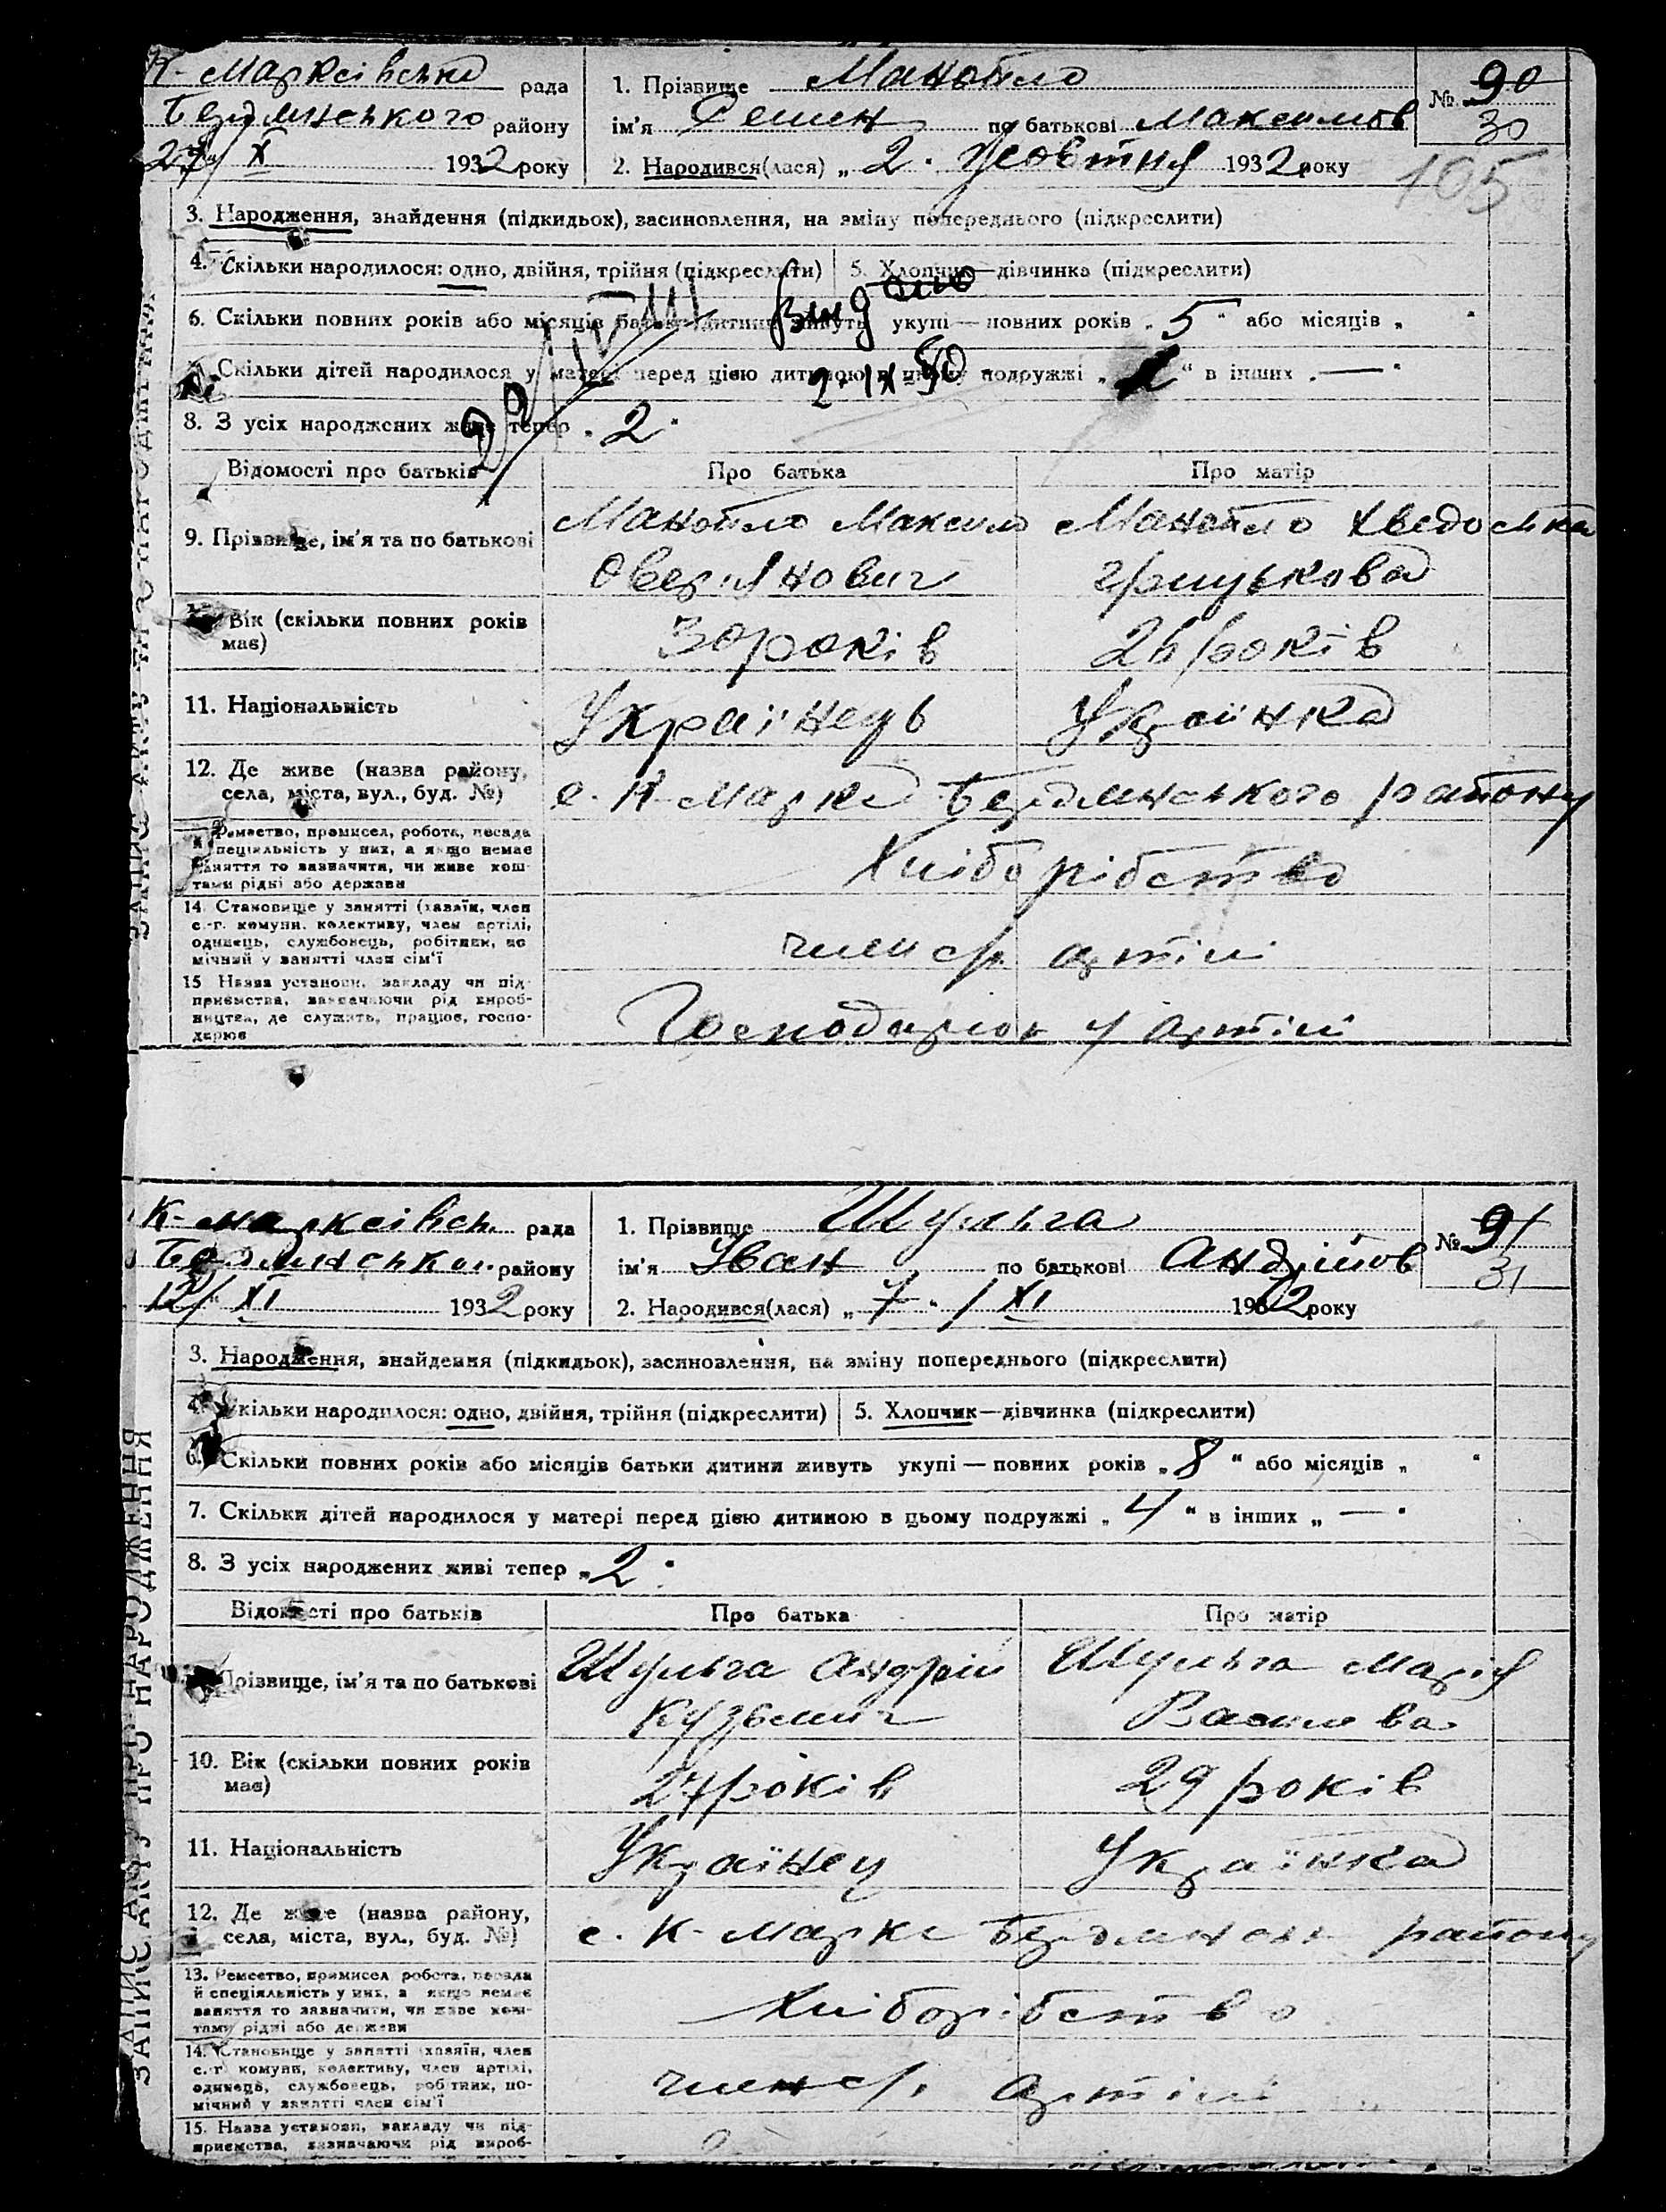 К-Марксівська рада
Бердянського району
27/X 1932 року
1. Прізвище Манойло
ім'я Семен по батькові Максимов
2. Народився(лася) „ 2 " Жовтня 1932 року
№ 90
30
105
3. Народження, знайдення (підкидьок), засиновлення, на зміну попереднього (підкреслити)
4. Скільки народилося: одно, двійня, трійня (підкреслити) 5. Хлопчик—дівчинка (підкреслити)
Видано
6. Скільки повних років або місяців батьки дитини живуть укупі — повних років „ 5 " або місяців „ "
7. Скільки дітей народилося у матері перед цією дитиною в цьому подружжі „ " в інших „ — "
2.IX 50
8. З усіх народжених живі тепер „ 2 "
Відомості про батьків Про батька Про матір
9. Прізвище, ім'я та по батькові
Манойло Максим Манойло Хведоська
Оверянович Грицькова
10. Вік (скільки повних років має)
30 років 26 років
11. Національність Українець Українка
12. Де живе (назва району,
села, міста, вул., буд. №) с. К-Маркс Бердянського району
13. Ремество, промисел, робота, посада
й спеціяльність у них, а якщо немає
заняття то зазначити, чи живе кош-
тами рідні або держави
Хліборібство
14. Становище у занятті (хазяїн, член
с.-г. комуни, колективу, член артілі,
одинець, службовець, робітник, по-
мічний у занятті член сім'ї
член с/г. артілі
15. Назва установи, закладу чи під-
приємства, зазначаючи рід вироб-
ництва, де служить, працює, госпо-
дарює
Господарює у артілі
ЗАПИС АКТУ ПРО НАРОДЖЕННЯ
К-Марксівсь. рада
Бердянськог. району
12/XI 1932 року
1. Прізвище Шульга
ім'я Іван по батькові Андрійов
2. Народився(лася) „ 7 " / XI 1932 року
№ 91
31
3. Народження, знайдення (підкидьок), засиновлення, на зміну попереднього (підкреслити)
4. Скільки народилося: одно, двійня, трійня (підкреслити) 5. Хлопчик—дівчинка (підкреслити)
6. Скільки повних років або місяців батьки дитини живуть укупі — повних років „ 8 " або місяців „ "
7. Скільки дітей народилося у матері перед цією дитиною в цьому подружжі „ 4 " в інших „ — "
8. З усіх народжених живі тепер „ 2 "
Відомості про батьків Про батька Про матір
9. Прізвище, ім'я та по батькові
Шульга Андрій Шульга Марія
Кузьмич Василева
10. Вік (скільки повних років має)
27 років 29 років
11. Національність Українец Українка
12. Де живе (назва району,
села, міста, вул., буд. №) с. К-Маркс Бердянськ району
13. Ремество, промисел робота, посада
й спеціяльність у них, а якщо немає
заняття то зазначити, чи живе кош-
тами рідні або держави
Хліборібство
14. Становище у занятті (хазяїн, член
с.-г. комуни, колективу, член артілі,
одинець, службовець, робітник, по-
мічний у занятті член сім'ї
член с/г. артілі
15. Назва установи, закладу чи під-
приємства, зазначаючи рід вироб-
ЗАПИС АКТУ ПРО НАРОДЖЕННЯ